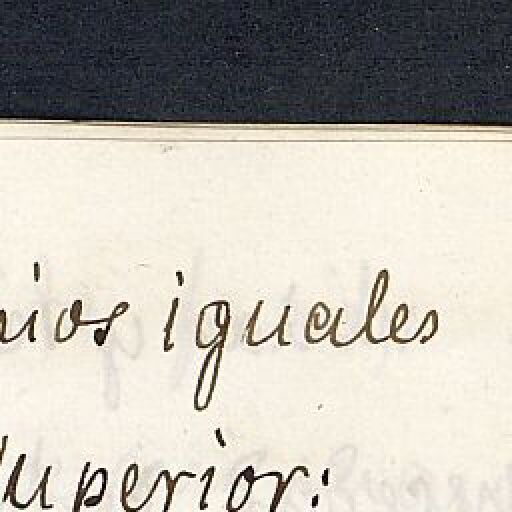 nios iguales
Superior: